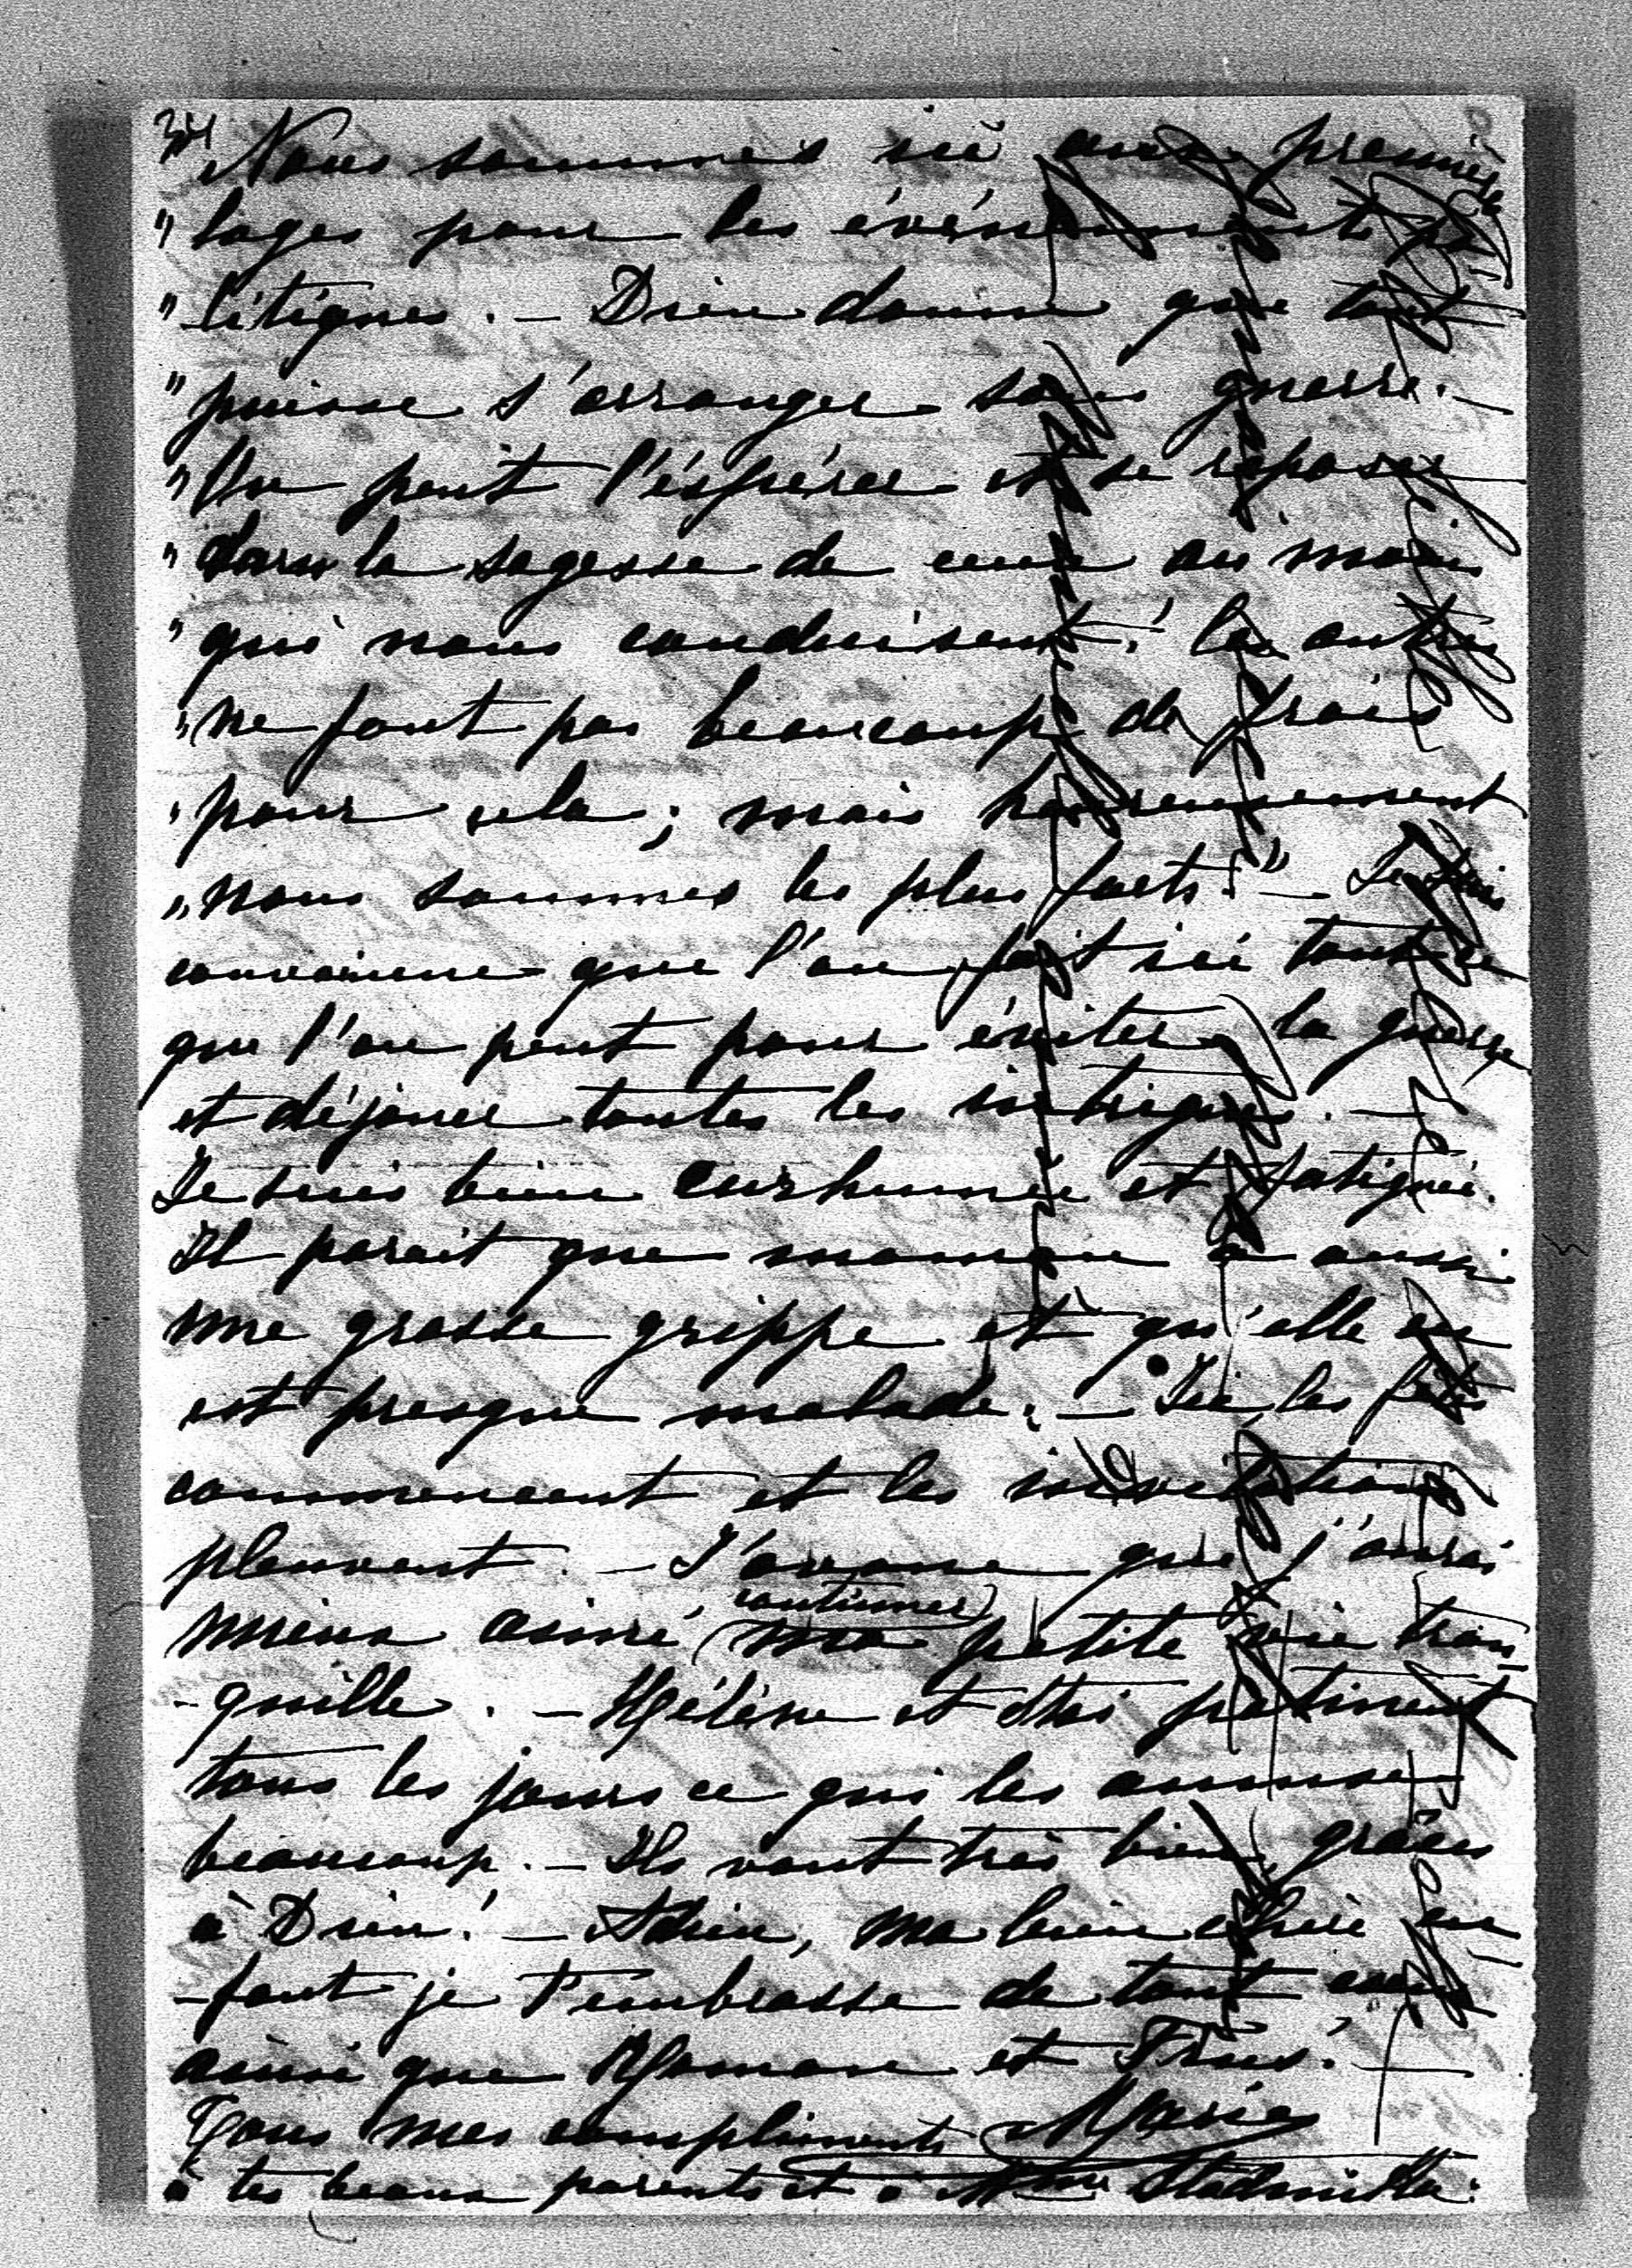 34
Nous sommes ici aux premières
" loges pour les événements po
" litiques. — Dieu donne que tout
" puisse s'arranger sans guerre. —
" On peut l'éspérer et se reposer
" dans la sagesse de ceux au moins
" qui nous conduisent! les autres
" ne font pas beaucoup de frais
" pour cela; mais heureusement
" nous sommes les plus forts!" — Je suis
convaincue que l'on fait ici tout ce
que l'on peut pour éviter la guerre
et déjouer toutes les intrigues. —
Je suis bien enrhumée et fatiguée.
Il parait que maman a aussi
une grosse grippe et qu'elle en
est presque malade. — Ici, les fêtes
commencent et les invitations
pleuvent. — J'avoue que j'aurai
mieux aimé (continuer) ma petite vie tran
- quille. — Hélène et patinent
tous les jours ce qui les amuse
beaucoup. — Ils vont très bien, grâces
à Dieu! — Adieu, ma bien chère en
- fant je t'embrasse de tout cœur
ainsi que Maman et —
Tous mes compliments Marie
à tes beaux parents et à Mme